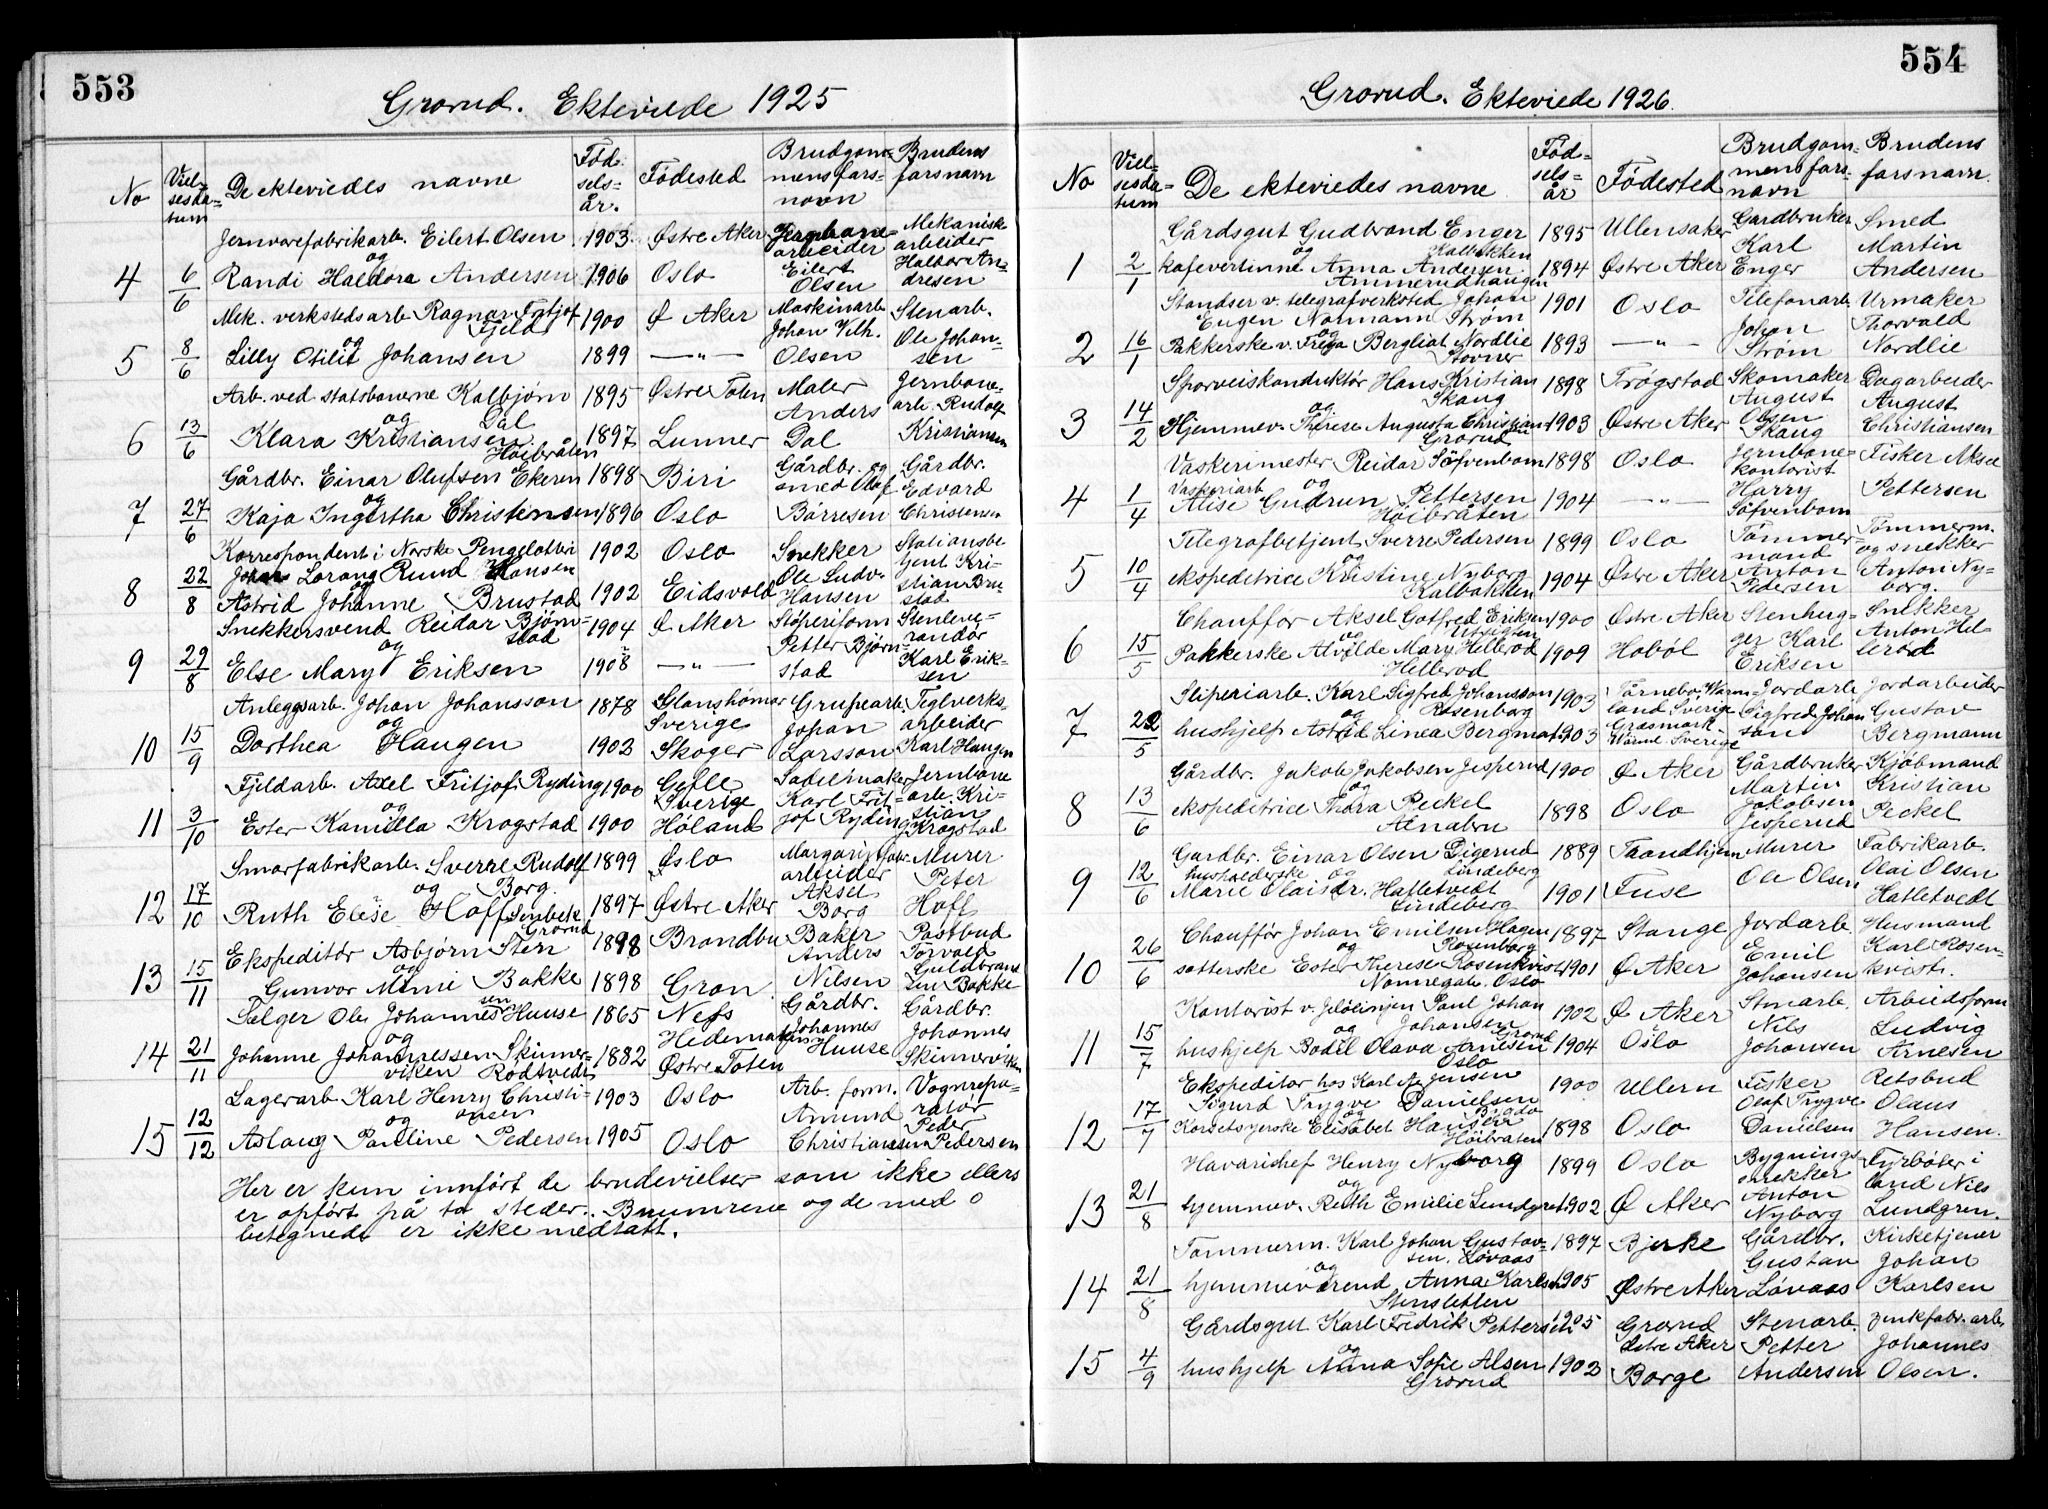 553
Grorud. Ekteviede 1925
No
Viel-
sesda-
tum
De ekteviedes navne
Fød-
sels-
år.
Fødested
Brudgom-
mens fars-
navn
Brudens
farsnavn
4
6/6
Jernvarefabrikarb. Eilert Olsen 1903. Østre Aker
og
Randi Haldora Andersen 1906 Oslo
arbeider
Eilert
Olsen
Mekaniske
arbeider
Halvor An-
dresen
5
8/6
Mek. verkstedsarb. Ragnar
Fjeld 1900 Ø Aker
og
Lilly Otilie Johansen 1899 —"—
Maskinarb.
Johan Vilh.
Olsen
Stenarb.
Ole Johan-
sen
6
13/6
Arb. ved statsbanerne Kolbjørn
Dal 1895 Østre Toten
og
Klara Kristiansen 1897 Lunner
Høibråten
Maler
Anders
Dal
Jernbane-
arb. Rudolf
Kristiansen
7
27/6
Gårdbr. Einar Olufsen Ekeren 1898 Biri
og
Kaja Ingertha Christensen 1896 Oslo
Gårdbr. og
smed Olaf
Børresen
Gårdbr.
Edvard
Christensen
8
22/8
Korrespondent i Norske Pengelotteri 1902 Oslo
Johan Lorang Rund Hansen
og
Astrid Johanne Brustad 1902 Eidsvold
Snekker
Ole Ludv.
Hansen
Stationsbe
tjent Kri-
stian Bru-
stad
9
29/8
Snekkersvend Reidar Bjørn-
stad 1904 Ø Aker
og
Else Mary Eriksen 1908 —"—
Støperiform
Petter Bjørn-
stad
Stenleve-
randør
Karl Erik-
sen
10
15/9
Anleggsarb. Johan Johansson 1878
Sverige
og
Dorthea Haugen 1902 Skoger
Grupearb.
Johan
Larsson
Teglverks-
arbeider
Karl Haugen
11
3/10
Fjeldarb. Axel Fritjof Ryding 1900 Gefle
Sverige
og
Ester Kamilla Krogstad 1900 Høland
Sadelmaker
Karl Frit-
jof Ryding
Jernbane
arb. Kri-
stian
Krogstad
12
17/10
Smørfabrikarb. Sverre Rudolf 1899 Oslo
og Borg.
Ruth Elise Hoff 1897 Østre Aker
Grorud
Margarinfabr.
arbeider
Aksel
Borg
Murer
Peter
Hoff
13
15/11
Ekspeditør Asbjørn Sten 1898 Brandbu
og
Gunvor Mimi Bakke 1898 Gran
Baker
Anders
Nilsen
Postbud
Torvald
Guldbrand
sen Bakke
14
21/11
Selger Ole Johannessen Huuse 1865 Nes
Hedemarken
og
Johanne Johannessen Skinner-
viken Rødtvedt 1882 Østre Toten
Gårdbr.
Johannes
Huuse
Gårdbr.
Johannes
Skinnerviken
15
12/12
Lagerarb. Karl Henry Christi-
ansen 1903 Oslo
og
Aslaug Pauline Pedersen 1905 Oslo
Arb. form.
Amund
Christiansen
Vognrepa-
ratør
Peder
Pedersen
Her er kun innført de brudevielser som ikke ellers
er opført på to steder. Bnumrene og de med o
betegnede er ikke medtatt.
554
Grorud. Ekteviede 1926.
No
Viel-
sesda-
tum
De ekteviedes navne
Fød-
sels-
år
Fødested
Brudgom-
mens fars-
navn
Brudens
farsnavn.
1
2/1
Gårdsgut Gudbrand Enger 1895 Ullensaker
og Kalbakken
kafevertinne Anna Andersen 1894 Østre Aker
Ammerudhaugen
Gardbruker
Karl
Enger
Smed
Martin
Andersen
2
16/1
Standser v. telegrafverksted Johan 1901 Oslo
Eugen Normann Strøm
og
Pakkerske v. Freya Bergliot Nordlie 1893 —"—
Stovner
Telefonarb
Johan
Strøm
Urmaker
Thorvald
Nordlie
3
14/2
Sporveiskonduktør Hans Kristian 1898 Trøgstad
Skaug
og
Hjemmev. Therese Augusta Christiansen 1903 Østre Aker
Grorud
Skomaker
August
Olsen
Skaug
Dagarbeider
August
Christiansen
4
1/4
Vaskerimester Reidar Söfvenbom 1898 Oslo
Vaskeriarb og
Alise Gudrun Pettersen 1904 —"—
Høibråten
Jernbane-
kontorist
Harry
Söfvenbom
Fisker Aksel
Pettersen
5
10/4
Telegrafbetjent Sverre Pedersen 1899 Oslo
og
ekspeditrice Kristine Nyborg 1904 Østre Aker
Kalbakken
Tømmer-
mand
Anton
Pedersen
Tømmerm.
og snekker
Anton Ny-
borg.
6
15/5
Chauffør Aksel Gotfred Eriksen 1900 Østre Aker
og Utsigten
Pakkerske Alvilde Mary Hellerod 1909 Hobøl
Hellerod
Stenhug-
ger Karl
Eriksen
Snekker
Anton Hel
lerod
7
22/5
Sliperiarb. Karl Sigfred Johansson 1903
og Rosenborg
hushjelp Astrid Linea Bergman 1903
Jordarb
Sigfred Johan
son
Jordarbeider
Gustav
Bergmann
8
13/6
Gårdbr. Jakob Jakobsen Jesperud 1900 Ø Aker
og
ekspeditrice Thora Peckel 1898 Oslo
Alnabru
Gårdbruker
Martin
Jakobsen
Jesperud
Kjøbmand
Kristian
Peckel
9
12/6
Gardbr. Einar Olsen Digerud 1889 Trondhjem
husholderske og Lindeberg
Marie Olaisdr. Hatletvedt 1901 Fuse
Lindeberg
Murer
Ole Olsen
Fabrikarb.
Olai Olsen
Hatletvedt
10
26/6
Chauffør Johan Emilsen Hagen 1897 Stange
og Rosenborg
sætterske Ester Therese Rosenkvist 1901 Ø Aker
Nannegate, Oslo
Jordarb.
Emil
Johansen
Husmand
Karl Rosen-
kvist.
11
15/7
Kontorist v. Jeløilinjen Paul Johan 1902 Ø Aker
og Johansen Grorud
hushjelp Bodil Olava Arnesen 1904 Oslo
Oslo
Stenarb.
Nils
Johansen
Arbeidsform
Ludvig
Arnesen
12
17/7
Ekspeditør hos Karl A. Jensen 1900 Ullern
Sigurd Trygve Danielsen
og
Korsetsyerske Elisabet Hansen 1898 Oslo
Høibråten
Fisker
Olaf Trygve
Danielsen
Retsbud
Olaus
Hansen.
13
21/8
Havarichef Henry Nyborg 1899 Oslo
og
hjemmev. Ruth Emilie Lundgren 1902 Ø Aker
Bygnings-
snekker
Anton
Nyborg
Fyrbøter i
land Nils
Lundgren.
14
21/8
Tømmerm. Karl Johan Gustav- 1897 Bjerke
sen Løvaas
og
hjemmeværend Anna Karlsen 1905 Østre Aker
Stensletten
Gårdbr.
Gustav
Løvaas
Kirketjener
Johan
Karlsen
15
4/9
Gårdsgut Karl Fredrik Pettersen 1905 Grorud
Østre Aker
og
hushjelp Anna Sofie Olsen 1902 Borge
Grorud
Stenarb.
Petter
Andersen
Zinkfabr. arb.
Johannes
Olsen.